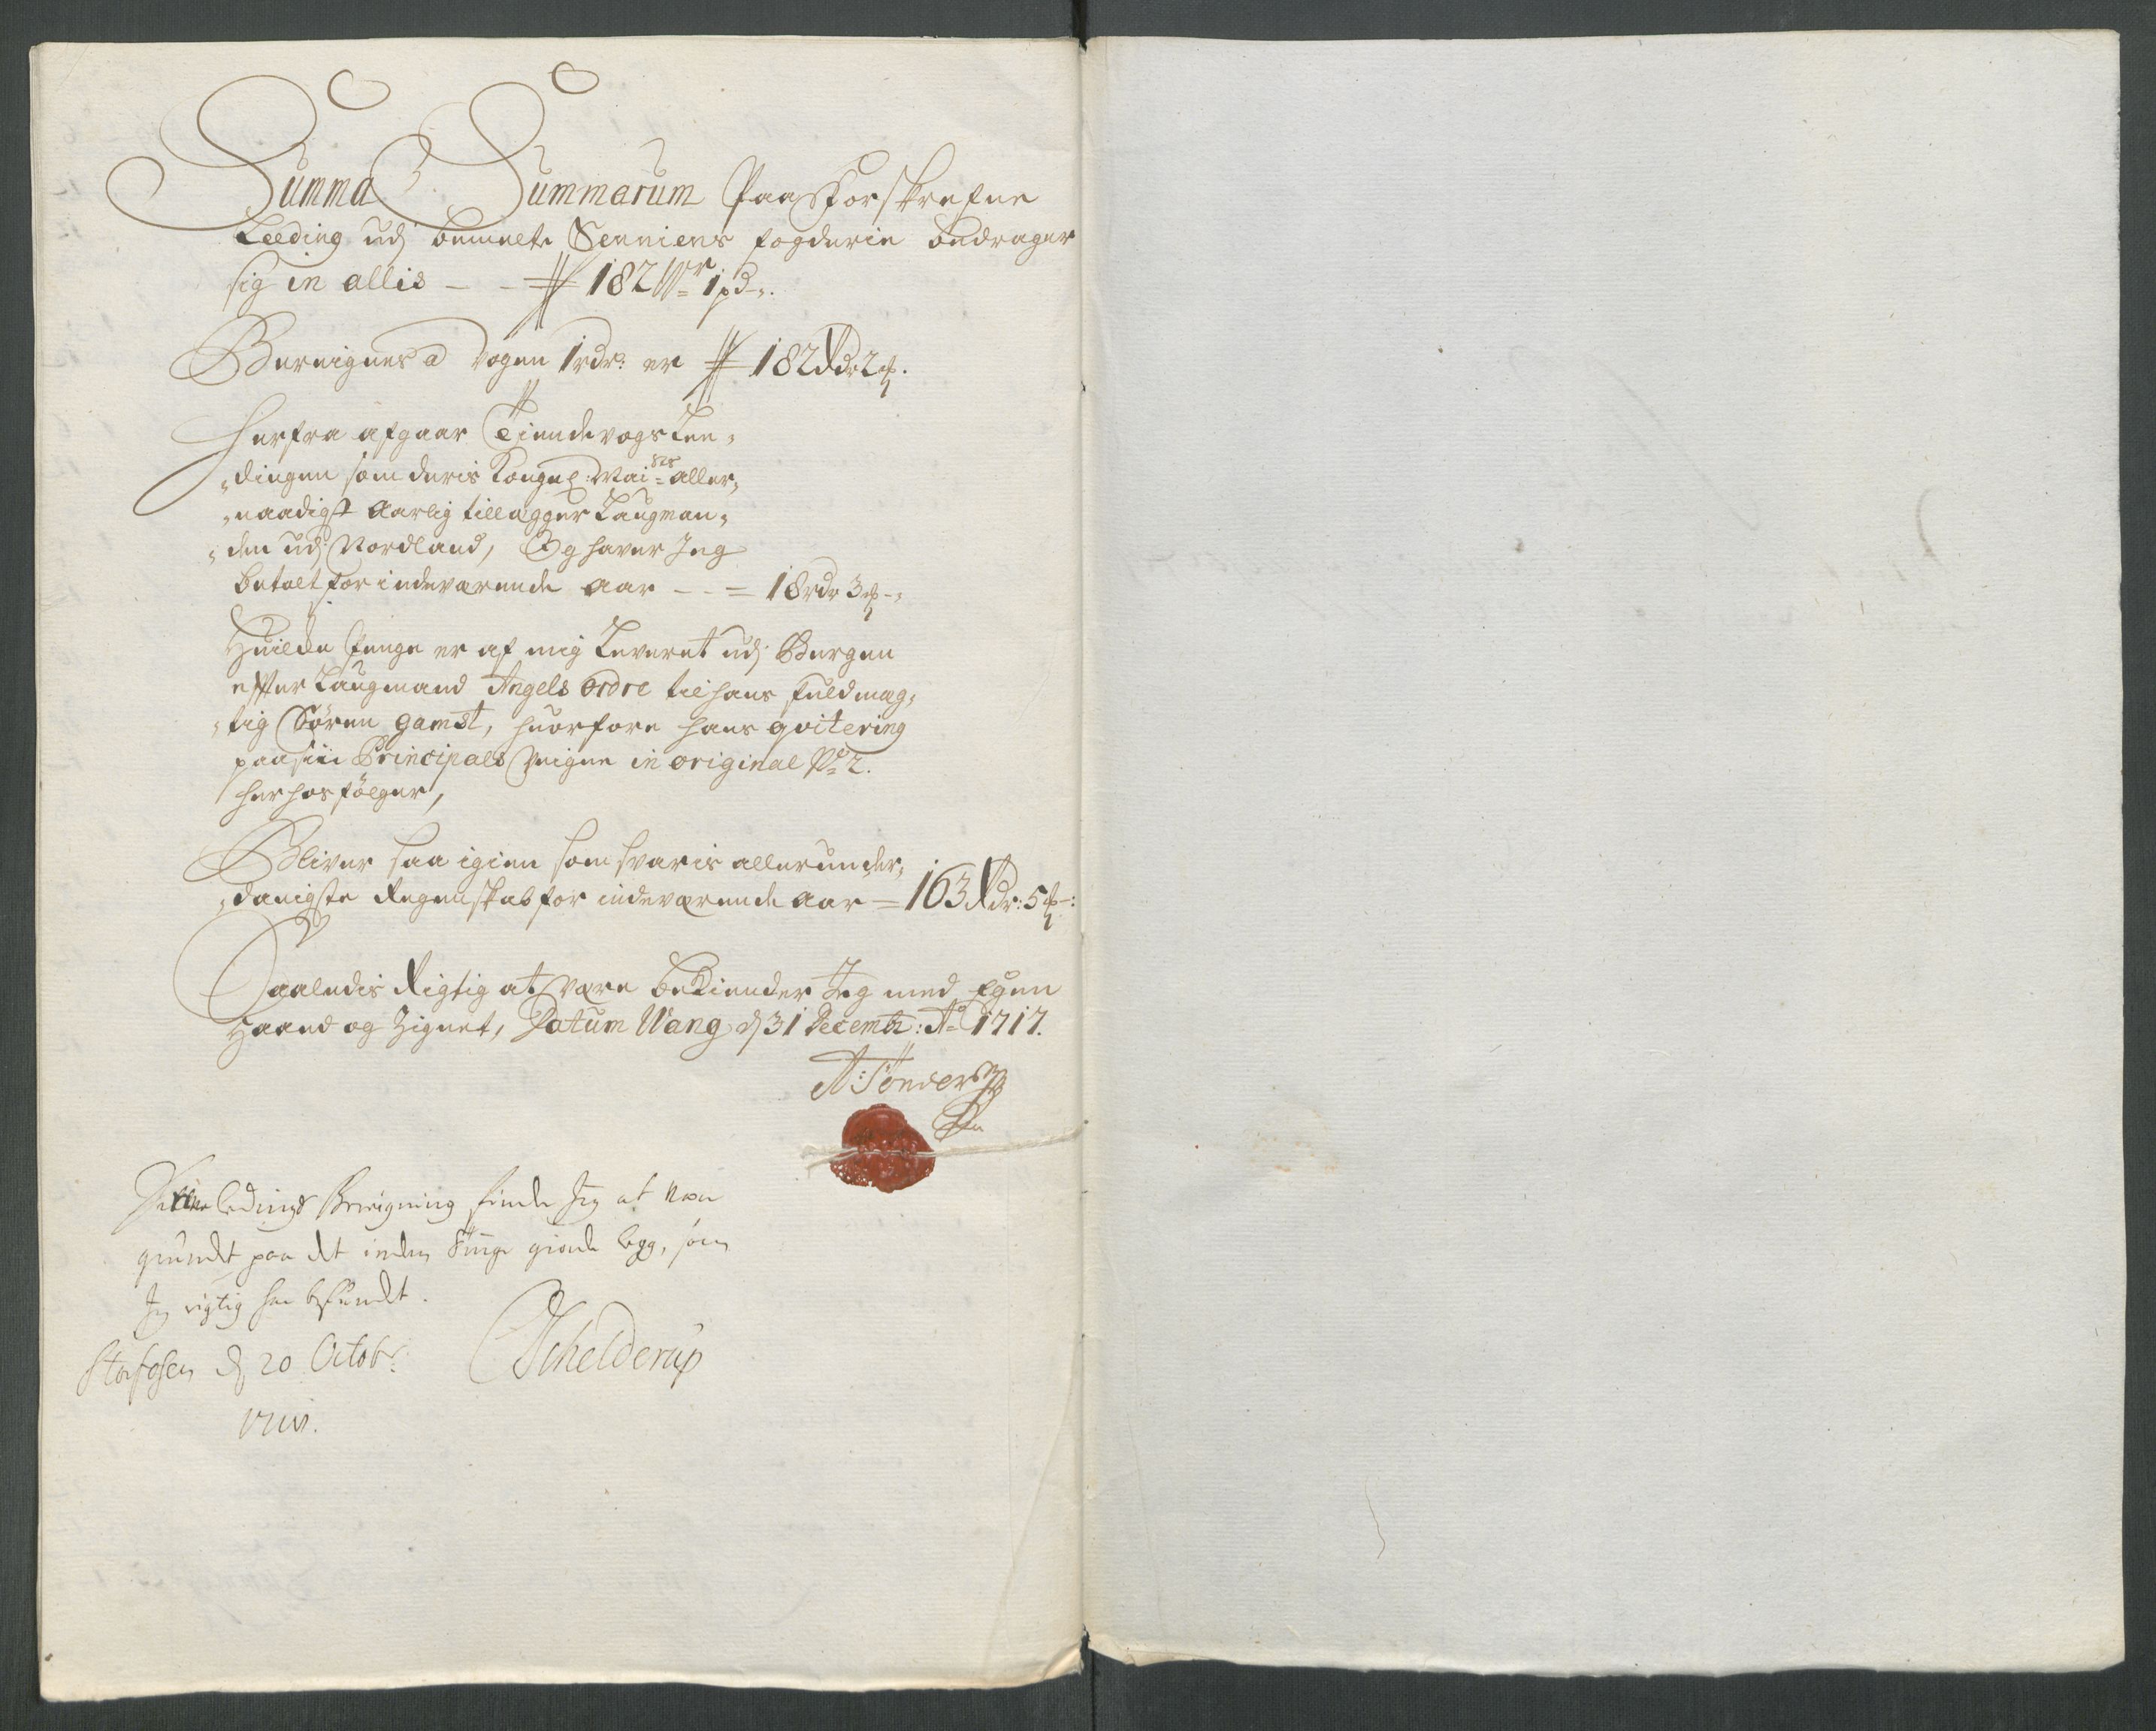 Summa Summarum Paa Forskrefne
Leeding udj bemelte Senniens fogderie bedrager
sig in allis - - 182 Wr 1 pd -.
Bereignes a Vogen 1 rdr: er 182 Rdr 2 ß.
Herfra afgaar Tiendevogs Lee-
dingen som deris Kongel: Mai: sts aller-
naadigst aarlig tillegger Laugman-
den udj Nordland, Og haver Jeg
betalt for indeværende aar - - = 18 rdr 3 ß -
Huilke penge er af mig Leveret udj Bergen
efter Laugmand Angels ordre til hans fuldmæg-
tig Søren gamst, huorfore hans qvitering
paa sin Principals Veigne in original No 2.
herhos følger,
Bliver saa igien som svaris allerunder-
danigste Regenskab for indeværende aar = 163 Rdr: 5 ß -:
Saaledis Rigtig at være bekiender Jeg med Egen
Haand og Zignet, Datum Wang d 31 Decembr: Ao 1717.
A: Tönder
ledings Bereigning finder Jeg at være
grundet paa det inden Tinge giorde legg, som
Jeg rigtig har befundet.
Storfosen d 20 Octobr:
Schelderup